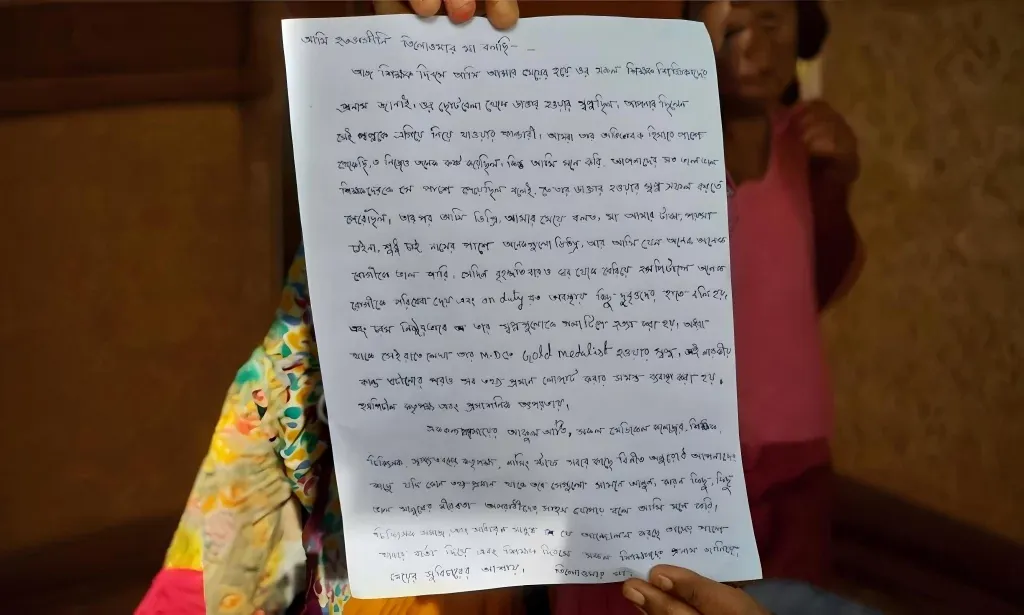 আমি হতভাগীনি তিলোত্তমার মা বলছি- -
আজ শিক্ষক দিবসে আমি আমার মেয়ের হয়ে ওর সকল শিক্ষক শিক্ষিকাদের
প্রণাম জানাই। ওর ছোটবেলা থেকে ডাক্তার হওয়ার স্বপ্ন ছিল, আপনারা ছিলেন
সেই স্বপ্নকে এগিয়ে নিয়ে যাওয়ার কান্ডারী। আমরা তার অভিভাবক হিসাবে পাশে
থেকেছি, ও নিজেও অনেক কষ্ট করেছিল, কিন্তু আমি মনে করি, আপনাদের মত ভালো ভালো
শিক্ষকদেরকে সে পাশে পেয়েছিল বলেই, ও তার ডাক্তার হওয়ার স্বপ্ন সফল করতে
পেরেছিল, তারপর আমি ডিগ্রি, আমার মেয়ে বলত, মা আমার টাকা, পয়সা
চাইনা, শুধু চাই নামের পাশে অনেকগুলো ডিগ্রি, আর আমি যেন অনেক অনেক
রোগীকে ভাল পারি, সেদিন বৃহস্পতিবারও ঘর থেকে বেরিয়ে হসপিটালে অনেক
রোগীকে পরিষেবা দেয় এবং on duty রত অবস্থায় কিছু দুর্বৃত্তদের হাতে বলি হয়,
এবং চরম নিষ্ঠুরভাবে তার স্বপ্নগুলোকে গলা টিপে হত্যা করা হয়।
থাকে সেই রাতে লেখা তার M.D তে Gold Medalist হওয়ার স্বপ্ন, এই নারকীয়
কান্ড ঘটানোর পরও সব তথ্য প্রমান লোপাট করার সমস্ত ব্যবস্থা করা হয়,
হসপিটাল কতৃপক্ষ এবং প্রশাসনিক তৎপরতায়,
মায়ের আকুল আর্তি, সকল মেডিকেল কলেজের, শিক্ষক,
চিকিৎসক, স্বাস্থ্যভবনের কতৃপক্ষ, নার্সিং স্টাফ সবার কাছে বিনীত অনুরোধ আপনাদের
কাছে যদি কোন তথ্য প্রমান থাকে তবে সেগুলো সামনে আনুন, কারন কিছু, কিছু
ভাল মানুষের নীরবতা অপরাধীদের সাহস যোগায় বলে আমি মনে করি।
চিকিৎসক সমাজ, এবং সাধারন মানুষ যে আন্দোলন করছে তাদের পাশে
থাকার বার্তা দিয়ে এবং শিক্ষক দিবসে সকল শিক্ষকদের প্রণাম জানিয়ে,
মেয়ের সুবিচারের আশায়, তিলোত্তমার মা